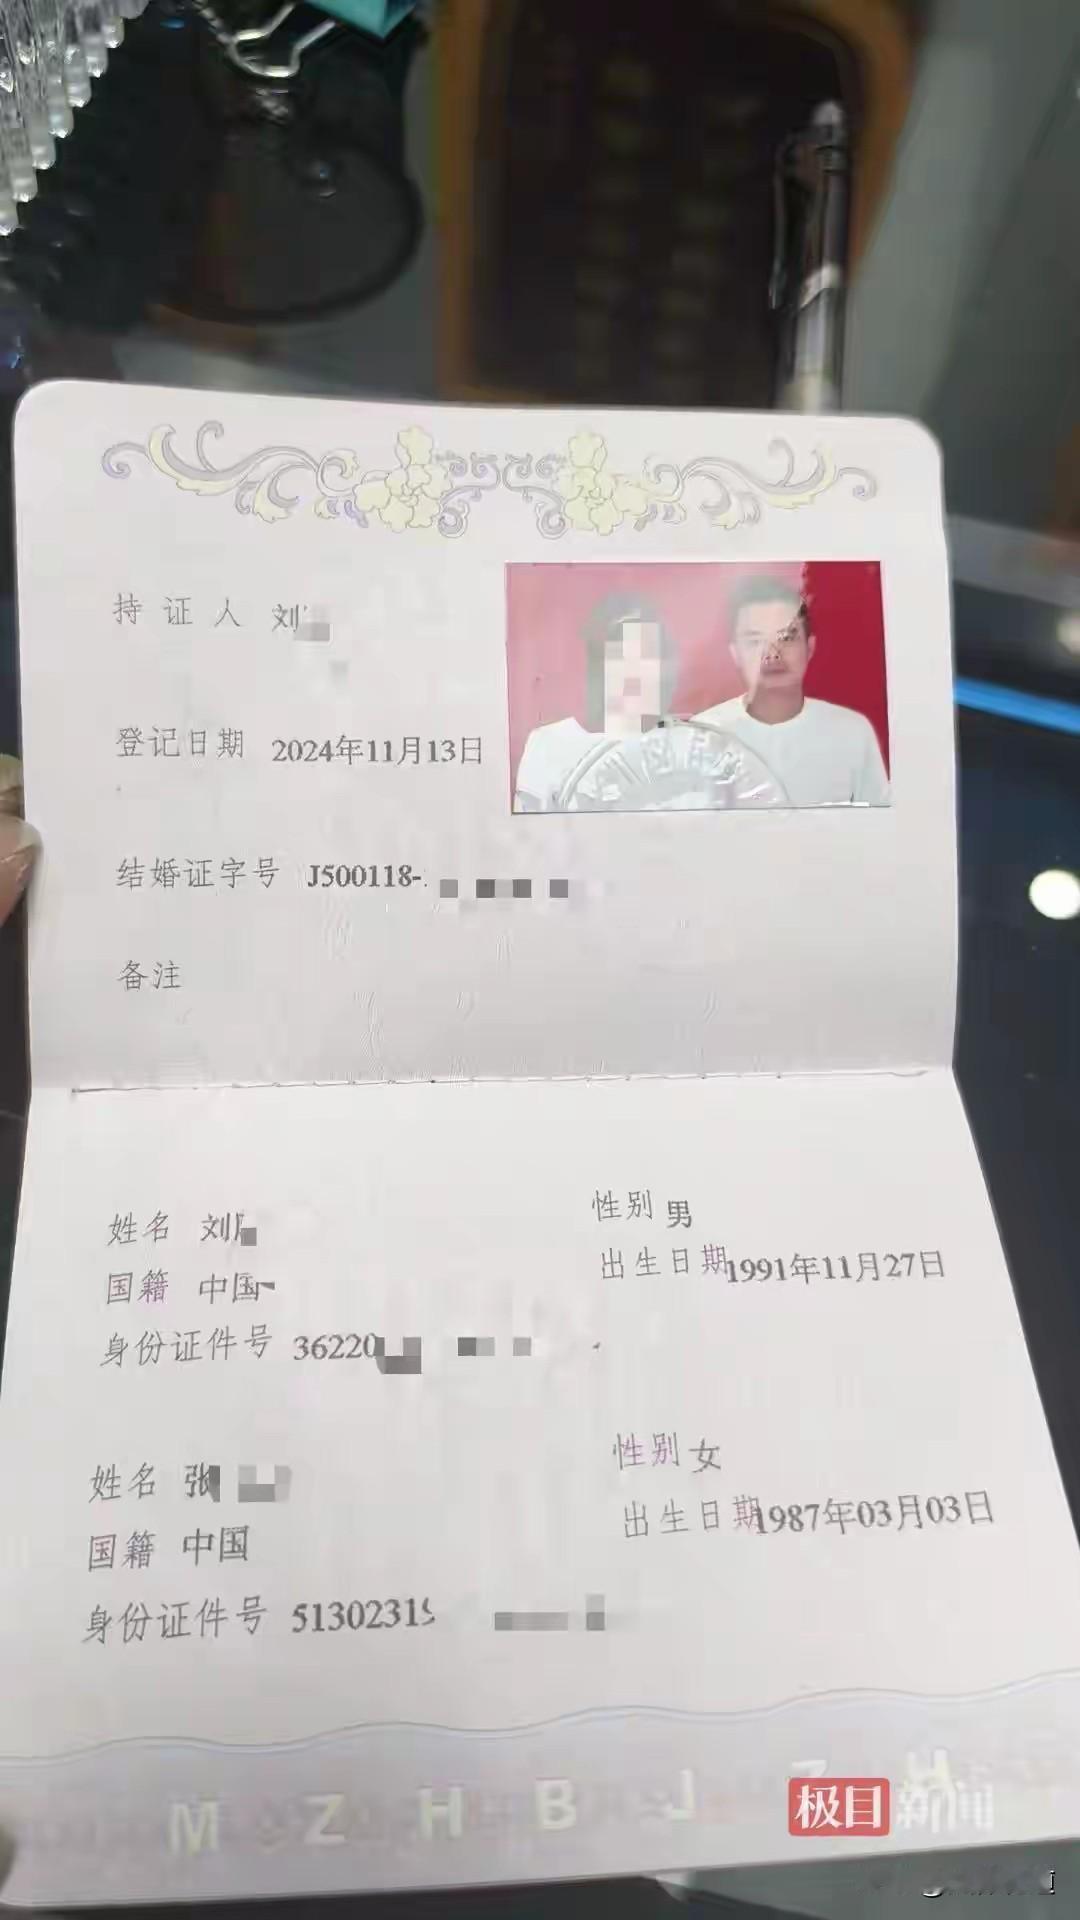 持证人 刘
登记日期 2024年11月13日
结婚证字号 J500118-
备注
姓名 刘
性别 男
国籍 中国
出生日期 1991年11月27日
身份证件号 36220
姓名 张
性别 女
国籍 中国
出生日期 1987年03月03日
身份证件号 5130231
M Z H B J Z H
极目新闻